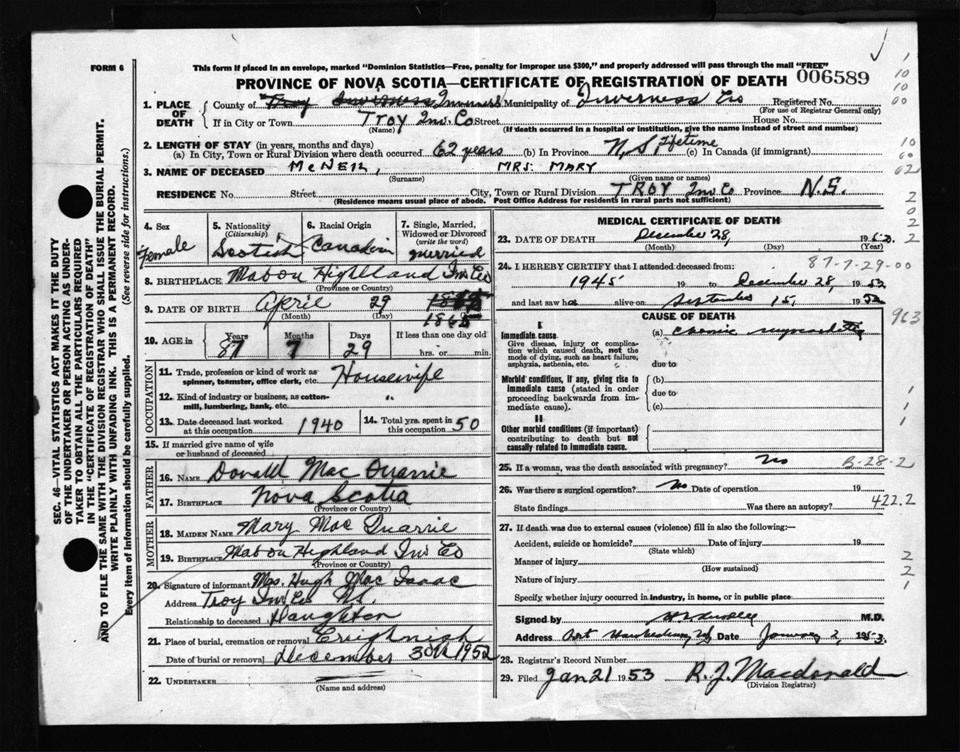 FORM 6
This form if placed in an envelope, marked "Dominion Statistics—Free, penalty for improper use $300," and properly addressed will pass through the mail "FREE"
PROVINCE OF NOVA SCOTIA—CERTIFICATE OF REGISTRATION OF DEATH 006589
1. PLACE OF DEATH County of Troy Inverness Inverness Municipality of Inverness Co Registered No.
(For use of Registrar General only)
If in City or Town TROY Inv. Co Street House No.
(Name) (If death occurred in a hospital or institution, give the name instead of street and number)
2. LENGTH OF STAY (in years, months and days)
(a) In City, Town or Rural Division where death occurred 62 years (b) In Province N.S. lifetime (c) In Canada (if immigrant)
3. NAME OF DECEASED McNEIL, MRS. MARY
(Surname) (Given name or names)
RESIDENCE No. Street City, Town or Rural Division TROY Inv Co Province N.S.
(Residence means usual place of abode. Post Office Address for residents in rural parts not sufficient)
4. Sex Female
5. Nationality (Citizenship) Scotish
6. Racial Origin Canadian
7. Single, Married, Widowed or Divorced (write the word) married
8. BIRTHPLACE Mabou Highland Inv Co
(Province or Country)
9. DATE OF BIRTH April 29 1865
(Month) (Day)
10. AGE in Years 87 Months 7 Days 29 If less than one day old hrs. or min.
OCCUPATION
11. Trade, profession or kind of work as spinner, teamster, office clerk, etc. Housewife
12. Kind of industry or business, as cotton-mill, lumbering, bank, etc.
13. Date deceased last worked at this occupation 1940 14. Total yrs. spent in 50
15. If married give name of wife or husband of deceased
FATHER
16. NAME Donald Mac Quarrie
17. BIRTHPLACE Nova Scotia
(Province or Country)
MOTHER
18. MAIDEN NAME Mary Mac Quarrie
19. BIRTHPLACE Mabou Highland Inv Co
(Province or Country)
20. Signature of informant Mrs. Hugh Mac Isaac
Address Troy Inv Co N.S.
Relationship to deceased Daughter
21. Place of burial, cremation or removal Creighnish
Date of burial or removal december 30th 1952
22. UNDERTAKER
(Name and address)
MEDICAL CERTIFICATE OF DEATH
23. DATE OF DEATH December 28, 1952
(Month) (Day) (Year)
87-7-29-00
24. I HEREBY CERTIFY that I attended deceased from:
1945 19 to December 28, 1952
and last saw h alive on September 15, 1952
963
CAUSE OF DEATH
I
Immediate cause
Give disease, injury or complication which caused death, not the mode of dying, such as heart failure, asphyxia, asthenia, etc.
(a) chronic myocarditis
due to
Morbid conditions, if any, giving rise to immediate cause (stated in order proceeding backwards from immediate cause).
(b)
due to
(c)
II
Other morbid conditions (if important) contributing to death but not causally related to immediate cause.
25. If a woman, was the death associated with pregnancy? No B-28-2
26. Was there a surgical operation? No Date of operation 19
State findings Was there an autopsy? 422.2
27. If death was due to external causes (violence) fill in also the following:—
Accident, suicide or homicide? Date of injury 19
(State which)
Manner of injury
(How sustained)
Nature of injury
Specify whether injury occurred in industry, in home, or in public place
Signed by M.D.
Address Port Hawkesbury NS Date January 2, 1953
28. Registrar's Record Number
29. Filed Jan 21 1953 R. J. Macdonald
(Division Registrar)
SEC. 46—VITAL STATISTICS ACT MAKES IT THE DUTY
OF THE UNDERTAKER OR PERSON ACTING AS UNDER-
TAKER TO OBTAIN ALL THE PARTICULARS REQUIRED
IN THE "CERTIFICATE OF REGISTRATION OF DEATH"
AND TO FILE THE SAME WITH THE DIVISION REGISTRAR WHO SHALL ISSUE THE BURIAL PERMIT.
WRITE PLAINLY WITH UNFADING INK. THIS IS A PERMANENT RECORD.
Every item of information should be carefully supplied. (See reverse side for instructions.)